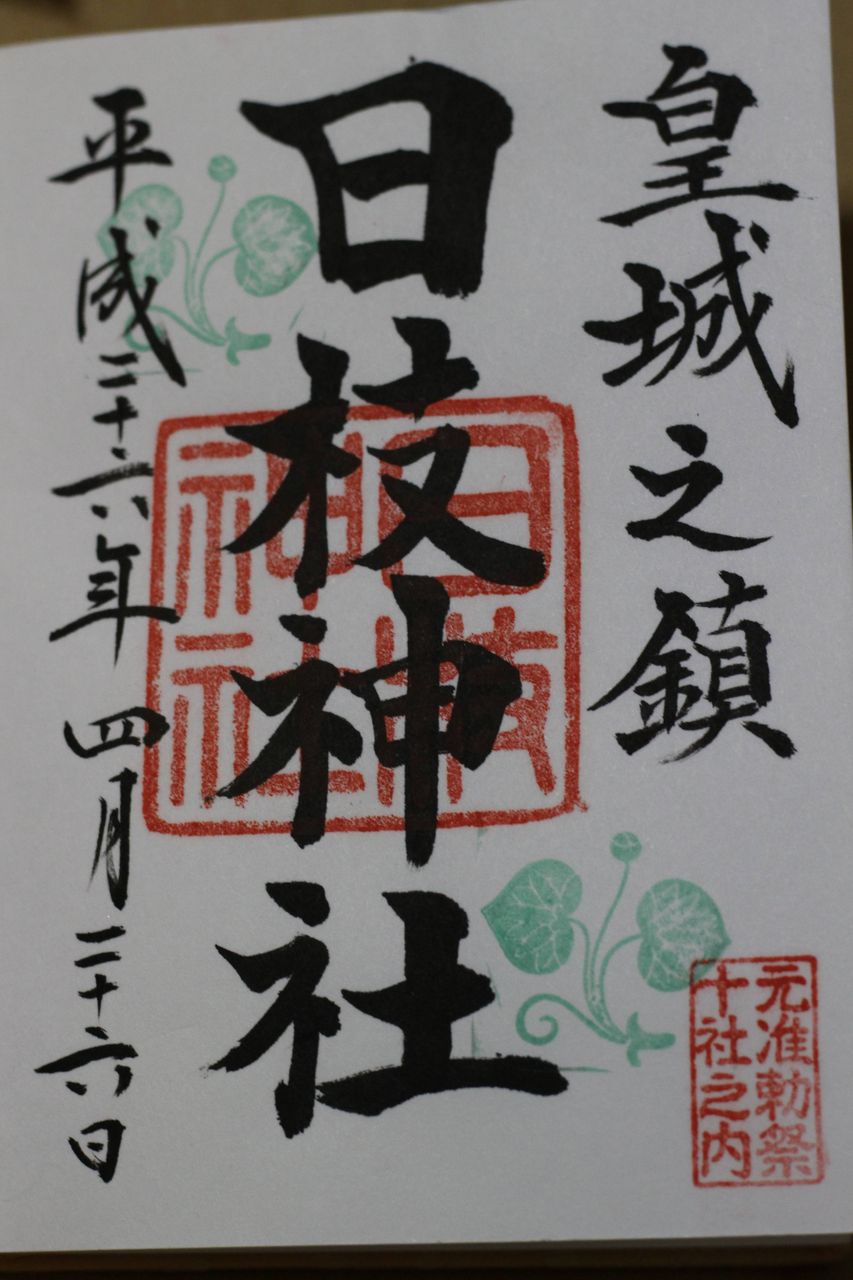 皇城之鎮
日枝神社
日枝
神社
平成二十六年四月二十六日
元准勅祭
十社之内